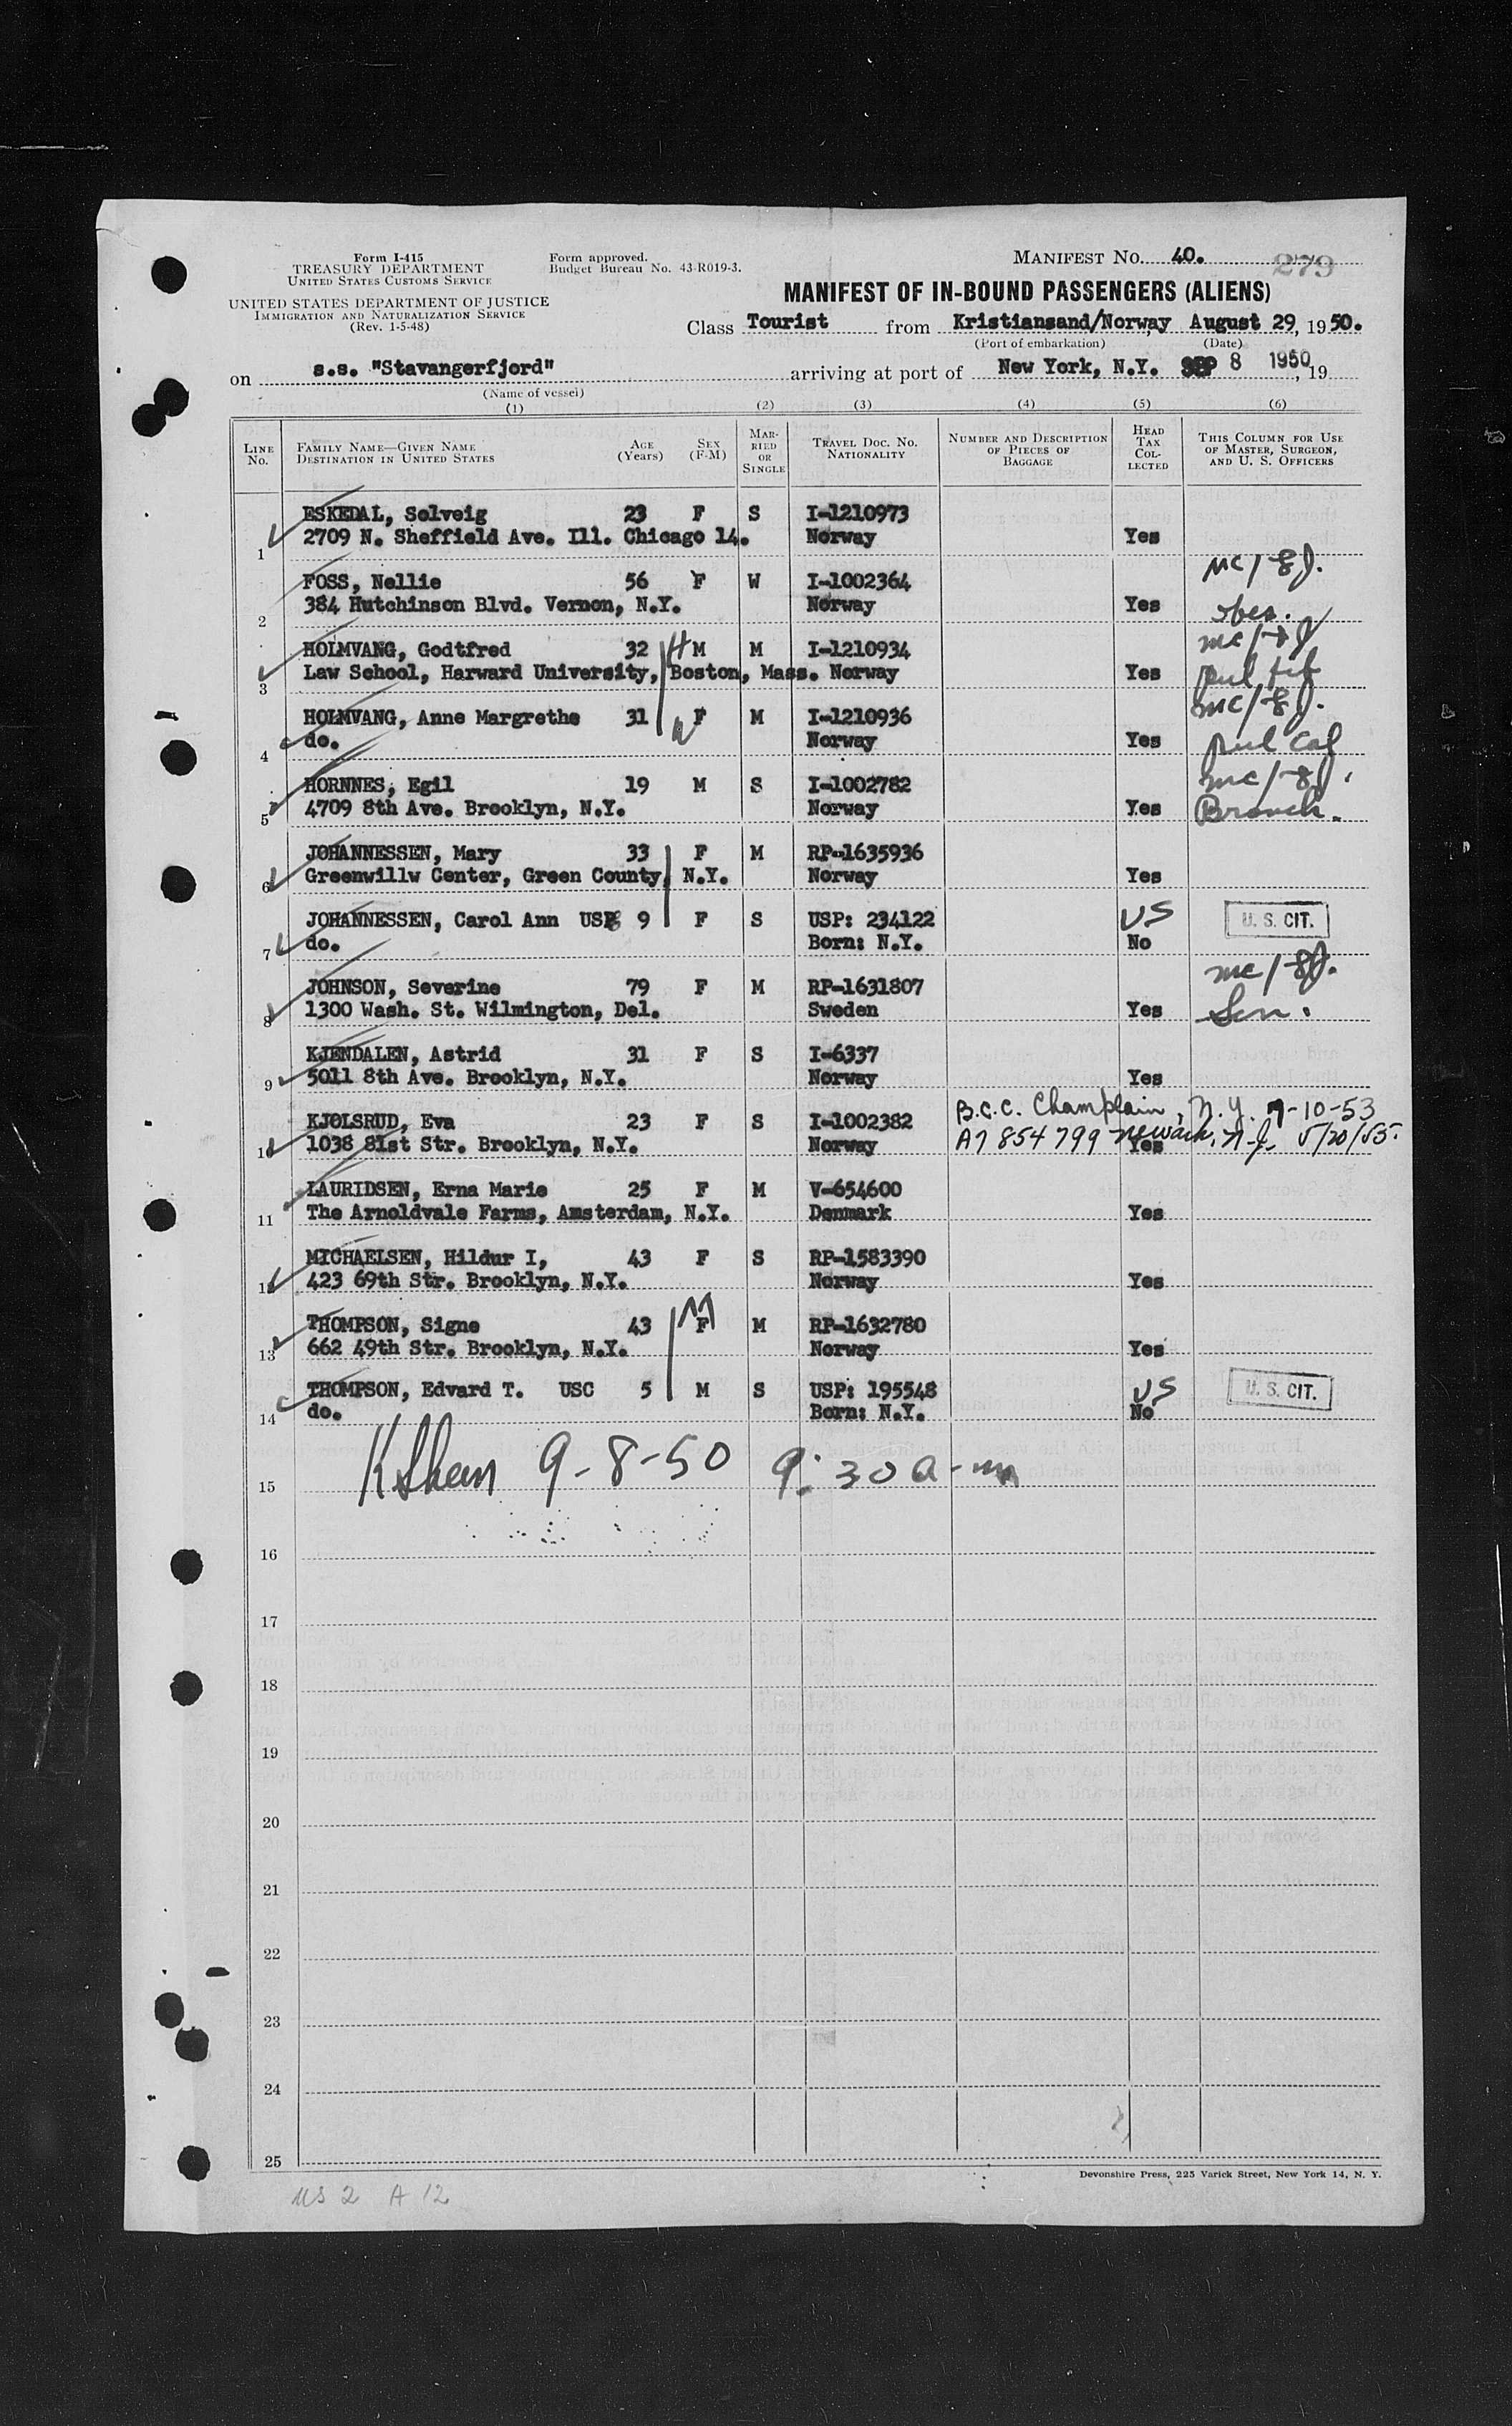 Form I-415
TREASURY DEPARTMENT
UNITED STATES CUSTOMS SERVICE
UNITED STATES DEPARTMENT OF JUSTICE
IMMIGRATION AND NATURALIZATION SERVICE
(Rev. 1-5-48)
Form approved.
Budget Bureau No. 43-R019-3.
MANIFEST No. 40.
279
MANIFEST OF IN-BOUND PASSENGERS (ALIENS)
Class Tourist from Kristiansand/Norway August 29, 1950.
(Port of embarkation) (Date)
on s.s. "Stavangerfjord" arriving at port of New York, N.Y. SEP 8 1950, 19
(Name of vessel)
(1) (2) (3) (4) (5) (6)
LINE No. FAMILY NAME—GIVEN NAME DESTINATION IN UNITED STATES AGE (Years) SEX (F-M) MARRIED OR SINGLE TRAVEL DOC. NO. NATIONALITY NUMBER AND DESCRIPTION OF PIECES OF BAGGAGE HEAD TAX COLLECTED THIS COLUMN FOR USE OF MASTER, SURGEON, AND U. S. OFFICERS
ESKEDAL, Solveig 23 F S I-1210973
1 2709 N. Sheffield Ave. Ill. Chicago 14. Norway Yes
FOSS, Nellie 56 F W I-1002364
2 384 Hutchinson Blvd. Vernon, N.Y. Norway Yes
HOLMVANG, Godtfred 32 M M I-1210934
3 Law School, Harward University, Boston, Mass. Norway Yes
HOLMVANG, Anne Margrethe 31 F M I-1210936
4 do. Norway Yes
HORNNES, Egil 19 M S I-1002782
5 4709 8th Ave. Brooklyn, N.Y. Norway Yes
JOHANNESSEN, Mary 33 F M RP-1635936
6 Greenwillw Center, Green County, N.Y. Norway Yes
JOHANNESSEN, Carol Ann 9 F S USP: 234122 US U. S. CIT.
7 do. Born: N.Y. No
JOHNSON, Severine 79 F M RP-1631807
8 1300 Wash. St. Wilmington, Del. Sweden Yes Sen.
KJENDALEN, Astrid 31 F S I-6337
9 5011 8th Ave. Brooklyn, N.Y. Norway Yes
KJOLSRUD, Eva 23 F S I-1002382 B.C.C. Champlain, N.Y. 7-10-53
10 1038 81st Str. Brooklyn, N.Y. Norway A7 854 799 Newark, N.J. 5/20/55. Yes
LAURIDSEN, Erna Marie 25 F M V-654600
11 The Arnoldvale Farms, Amsterdam, N.Y. Denmark Yes
MICHAELSEN, Hildur I, 43 F S RP-1583390
12 423 69th Str. Brooklyn, N.Y. Norway Yes
THOMPSON, Signe 43 F M RP-1632780
13 662 49th Str. Brooklyn, N.Y. Norway Yes
THOMPSON, Edvard T. USC 5 M S USP: 195548 US U. S. CIT.
14 do. Born: N.Y. No
15 9-8-50 9:30 a-m
16
17
18
19
20
21
22
23
24
25
Devonshire Press, 225 Varick Street, New York 14, N. Y.
US 2 A 12